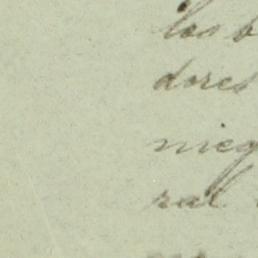 los b
dores
nieg
ral